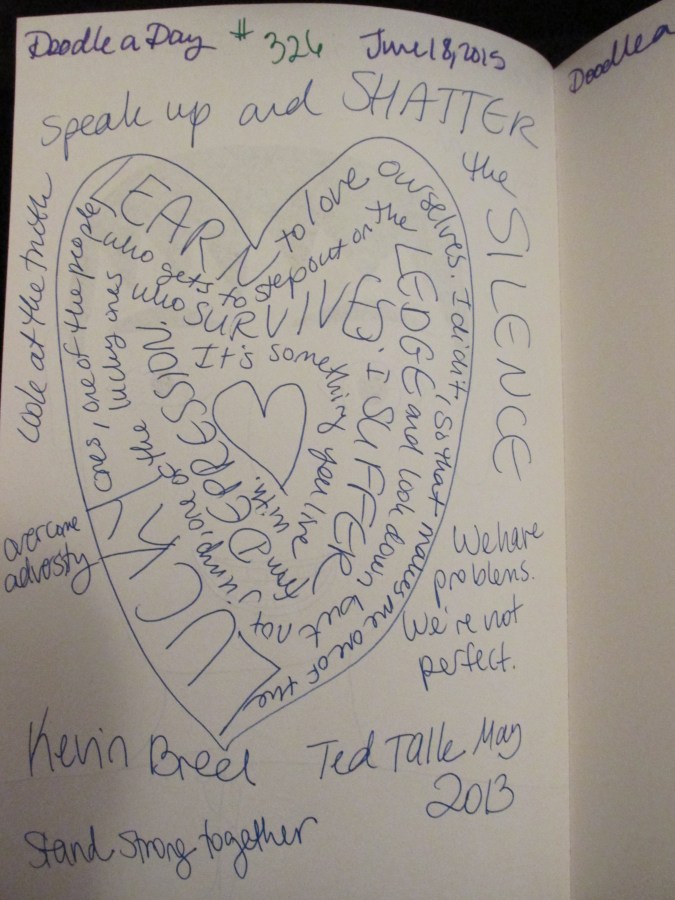 Doodle a Day # 326 June 18, 2015
Doodle a
Speak up and SHATTER
the
SILENCE
Look at the truth
LEARN to love ourselves. I didn't, so that makes me one of the
LUCKY
ones, one of the people
who gets to step out on the LEDGE and look down but not
jump, one of the
lucky ones
who SURVIVES. I SUFFER
from DEPRESSION.
It's something you live with.
overcome
adversity
We have
problems.
We're not
perfect.
Kevin Breel Ted Talk May
2013
Stand strong together